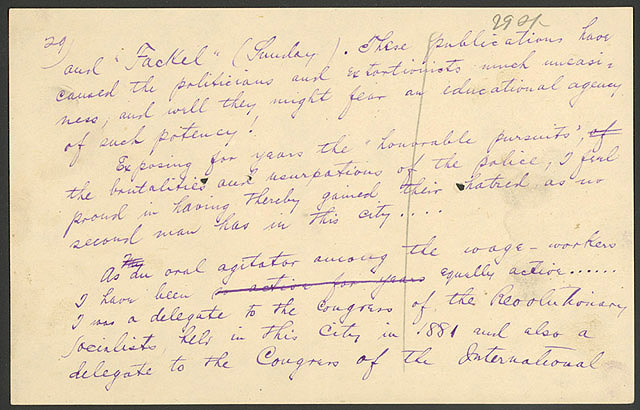 29)
29 of
and "Fackel" (Sunday). These publications have
caused the politicians and extortionists much uneasi-
ness, and well they might fear an educational agency
of such potency!
Exposing for years the "honorable pursuits", of
the brutalities and usurpations of the police, I feel
proud in having thereby gained their hatred as no
second man has in this city....
As an oral agitator among the wage-workers
I have been so active for years equally active......
I was a delegate to the congress of the Revolutionary
Socialists, held in this City in 1881 and also a
delegate to the Congress of the International